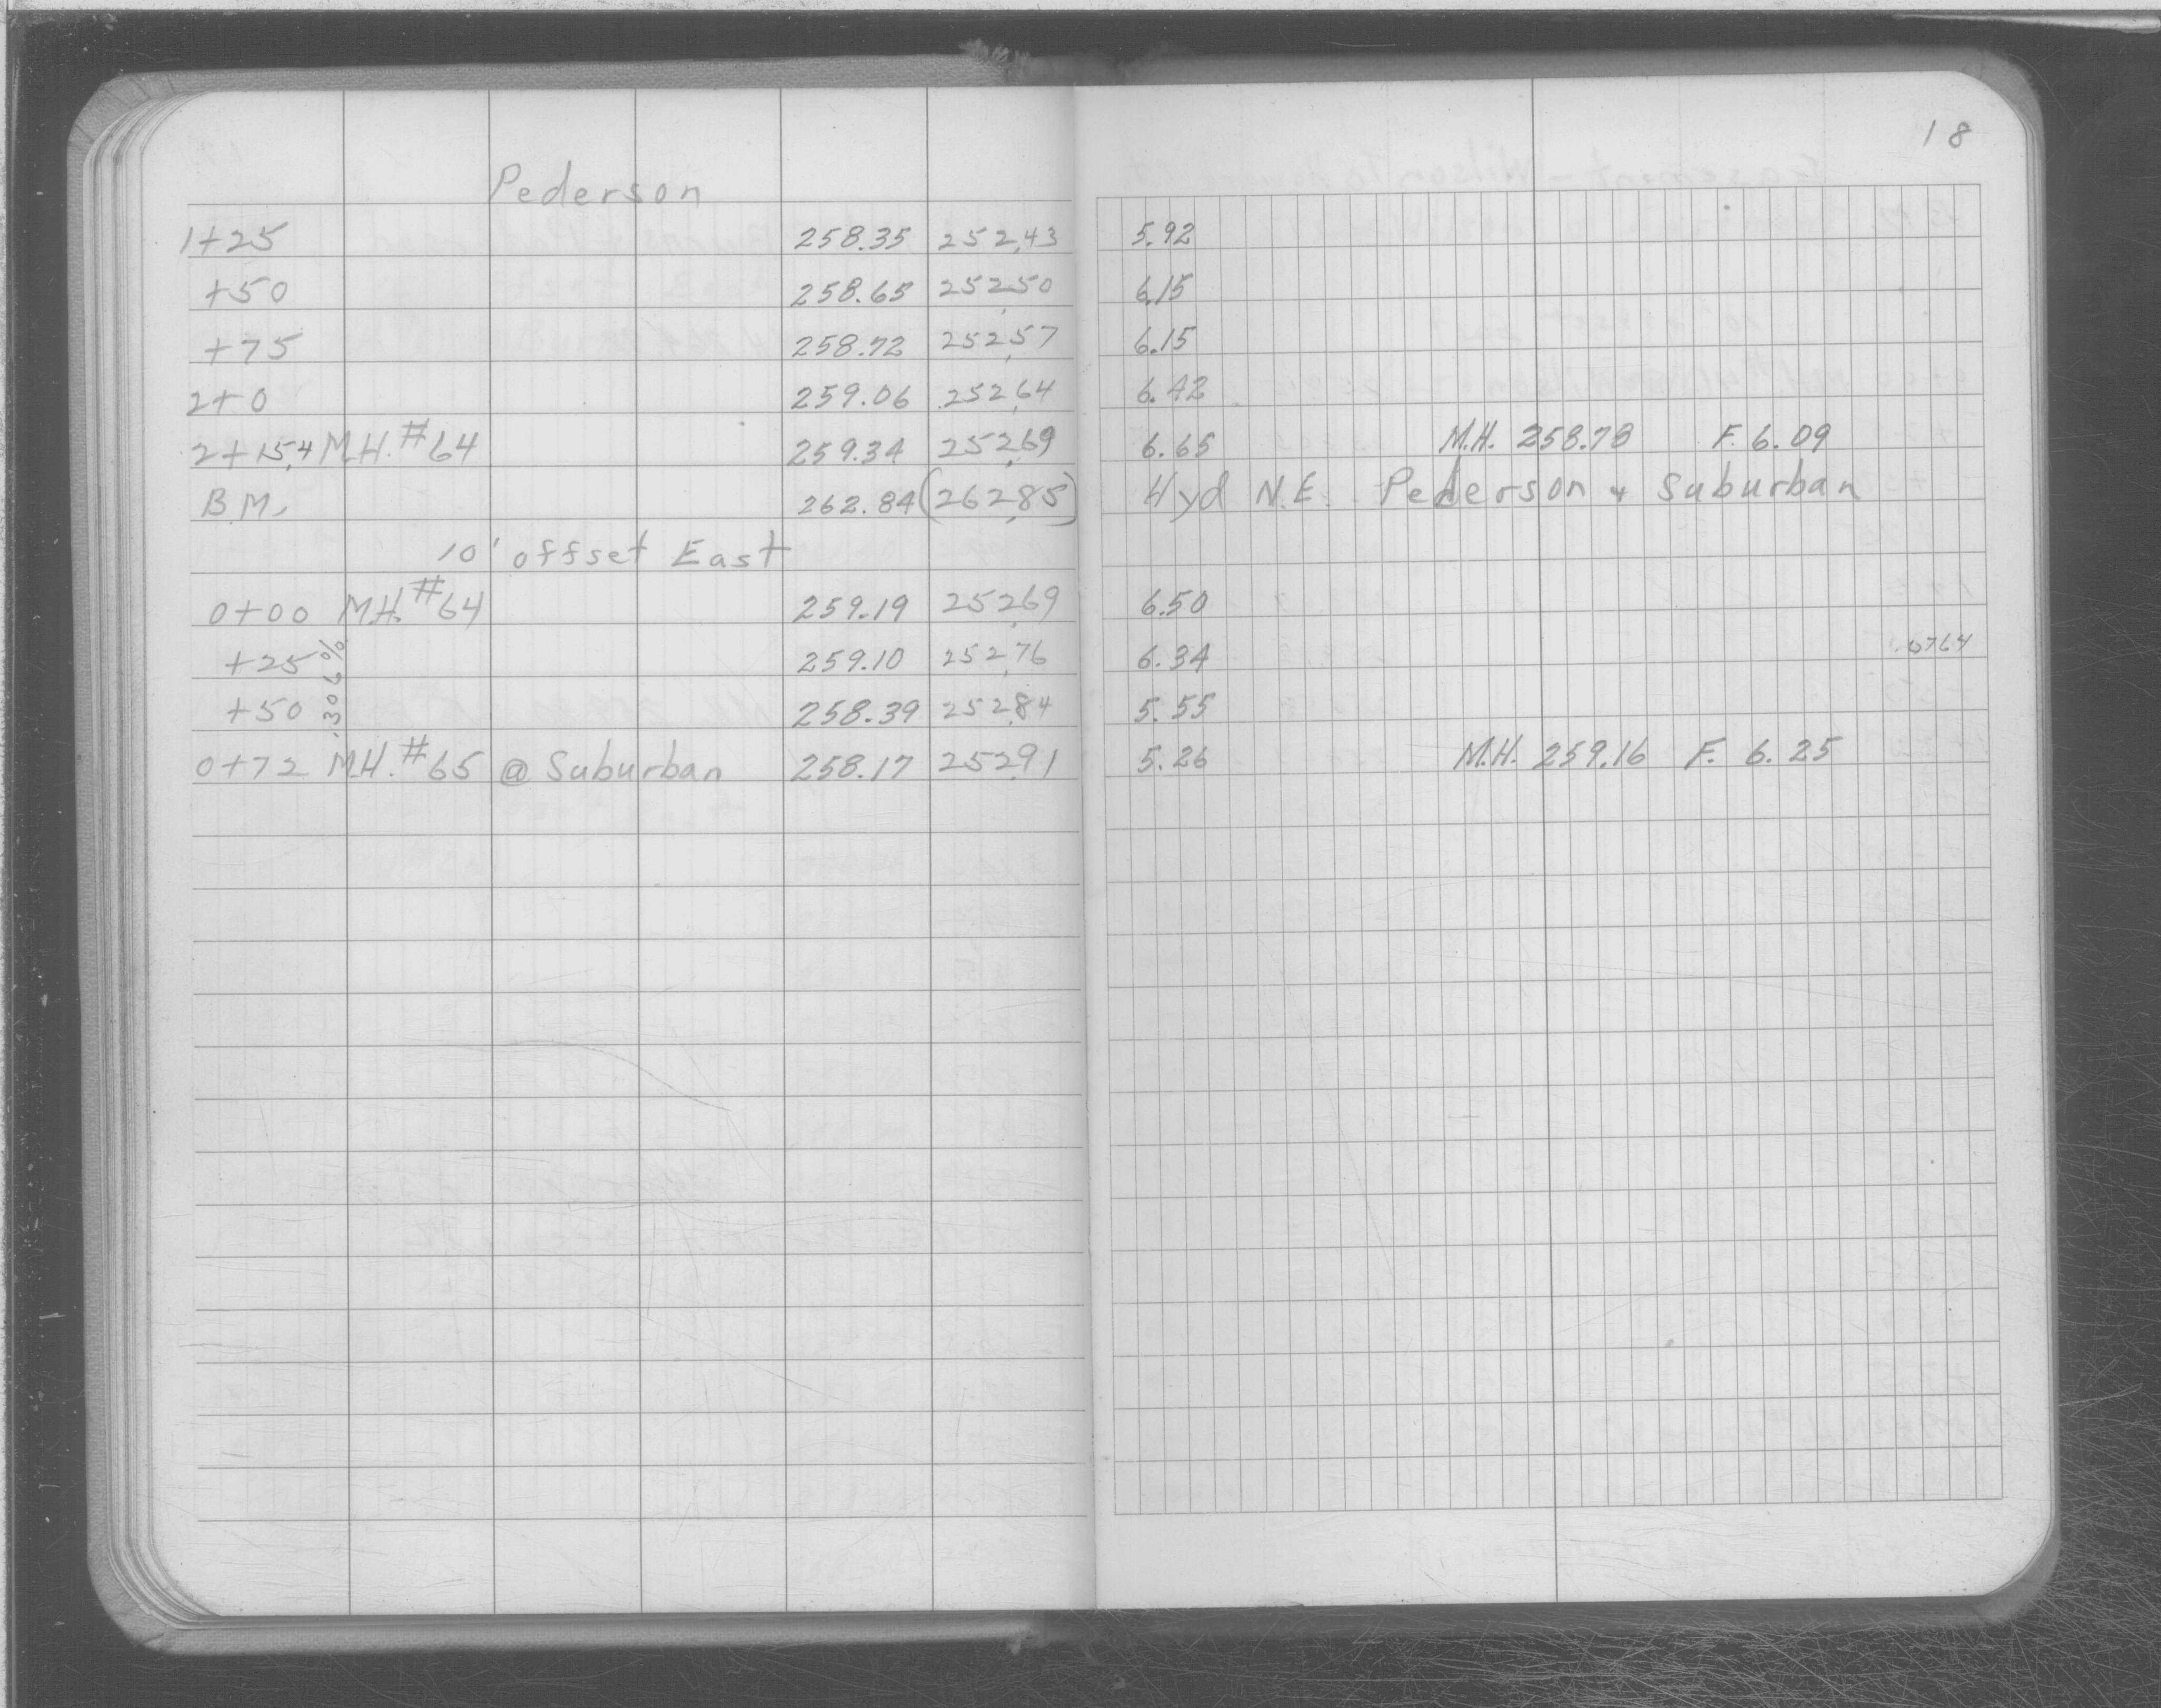 18
Pederson
1+25 258.35 252.43 5.92
+50 258.65 252.50 6.15
+75 258.72 252.57 6.15
2+0 259.06 252.64 6.42
2+15.4 M.H. #64 259.34 252.69 6.65 M.H. 258.78 F. 6.09
B.M. 262.84 (262.85) Hyd N.E. Pederson & Suburban
10' offset East
0+00 M.H. #64 259.19 252.69 6.50
+25 259.10 252.76 6.34 .0764
.306%
+50 258.39 252.84 5.55
0+72 M.H. #65 @ Suburban 258.17 252.91 5.26 M.H. 259.16 F. 6.25